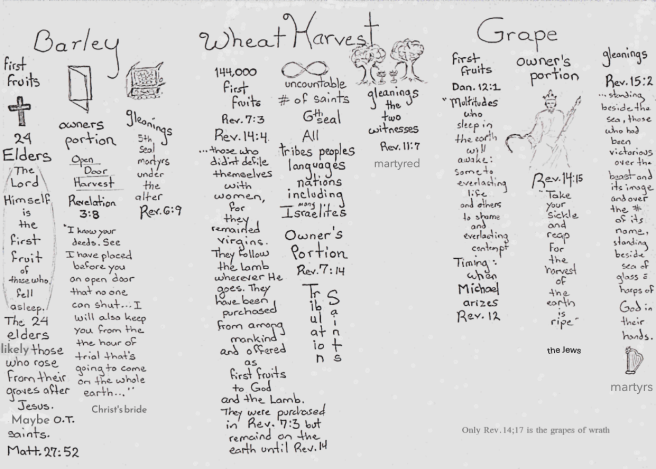 Barley
First
fruits
24
Elders
The
Lord
Himself
is
the
first
fruit
of
those who
fell
asleep.
The 24
elders
likely those
who rose
from their
graves after
Jesus.
Maybe O.T.
saints.
Matt. 27:52
owners
portion
Open
Door
Harvest
Revelation
3:8
"I know your
deeds. See
I have placed
before you
an open door
that no one
can shut...I
will also keep
you from the
the hour of
trial that's
going to come
on the whole
earth..."
Christ's bride
gleanings
5th
Seal
martyrs
under
the
alter
Rev. 6:9
Wheat Harvest
144,000
First
fruits
Rev. 7:3
Rev. 14:4
...those who
didn't defile
themselves
with
women,
for
they
remained
virgins.
They follow
the Lamb
wherever He
goes. They
have been
purchased
from among
mankind
and offered
as
first fruits
to God
and the Lamb.
They were purchased
in Rev. 7:3 but
remaind on the
earth until Rev. 14
uncountable
# of saints
6th seal
All
tribes peoples
languages
nations
including
many
Israelites
Owner's
Portion
Rev. 7:14
Tribulation
Saints
gleanings
the
two
witnesses
Rev. 11:7
martyred
Grape
First
fruits
Dan. 12:1
"Multitudes
who
sleep in
the earth
will
awake:
some to
everlasting
life
and others
to shame
and
everlasting
contempt
Timing:
when
Michael
arizes
Rev. 12
owner's
portion
Rev. 14:15
"Take
your
Sickle
and
reap
for
the
harvest
of
the
earth
is
ripe"
the Jews
gleanings
Rev. 15:2
...standing
beside the
sea, those
who had
been
victorious
over the
beast and
its image
and over
the #
of its
name,
standing
beside
sea of
glass &
harps of
God in
their
hands.
martyrs
Only Rev. 14;17 is the grapes of wrath